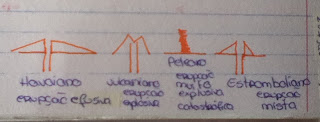 Hawaiano
erupção efusiva
vulcaniano
erupção
explosiva
Peleano
erupção
muito
explosiva
catastrófica
Estromboliano
erupção
mista